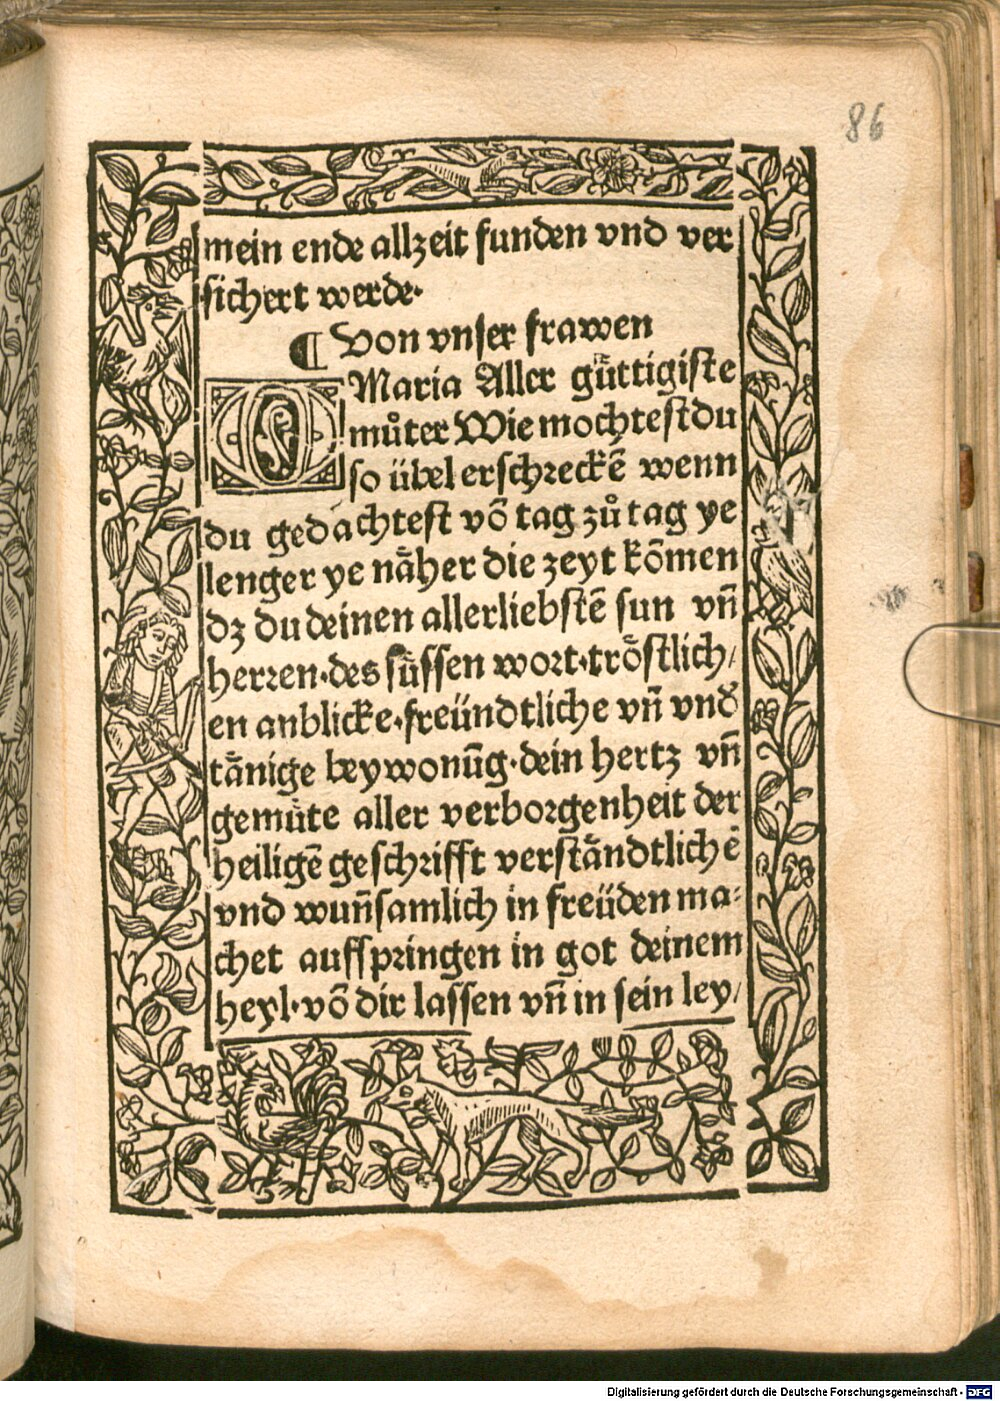 86
mein ende allzeit funden vnd ver
sichert werde.
¶ Von vnser frawen
O Maria Aller gu̎ttigiste
můter Wie mochtest du
so übel erschreckē wenn
du gedachtest vō tag zů tag ye
lenger ye nåher die zeyt kōmen
dz du deinen allerliebstē sun vn̄
herren·des süssen wort·tröstlich/
en anblicke·freündtliche vn̄ vnd̕
tånige beywonūg·dein hertz vn̄
gemüte aller verborgenheit der
heiligē geschrifft verståndtlichē
vnd wun̄samlich in freüden ma⸗
chet auffspringen in got deinem
heyl·vō dir lassen vn̄ in sein ley/
Digitalisierung gefördert durch die Deutsche Forschungsgemeinschaft - DFG